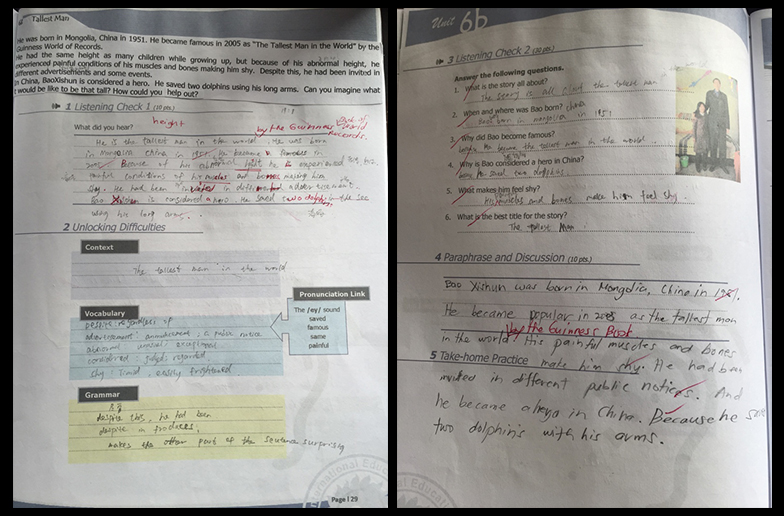 Tallest Man
He was born in Mongolia, China in 1951. He became famous in 2005 as "The Tallest Man in the World" by the
Guinness World of Records.
He had the same height as many children while growing up, but because of his abnormal height, he
experienced painful conditions of his muscles and bones making him shy. Despite this, he had been invited in
different advertisements and some events.
In China, BaoXishun is considered a hero. He saved two dolphins using his long arms. Can you imagine what
it would be to be that tall? How could you help out?
1 Listening Check 1 (10 pts.)
height
What did you hear?
by the Guinness
World
Records.
He is the tallest man in the world. He was born
in Mongolia China in
famous in
of his abnormal
he experienced
painful conditions of his muscles and bones making him
shy. He had been invited in different advertisement
is considered a hero. He saved two dolphins in the sea
using his long arms.
2 Unlocking Difficulties
Context
The tallest man in the world
Pronunciation Link
The /ey/ sound
saved
famous
same
painful
Vocabulary
Despite: regardless of
advertisement: announcement, a public notice
abnormal: unusual, exceptional
considered: judged, regarded
shy: timid, easily frightened
Grammar
despite this, he had been
despite
makes the other part of the sentence surprising
Page | 29
Unit 6b
3 Listening Check 2 (30 pts.)
Answer the following questions.
1. What is the story all about?
The story is all about the tallest man
2. When and where was Bao born? China
born in mongolia in 1951
3. Why did Bao become famous?
he became the tallest man in the world.
4. Why is Bao considered a hero in China?
he saved two dolphins
5. What makes him feel shy?
His muscles and bones make him feel shy.
6. What is the best title for the story?
The tallest Man
4 Paraphrase and Discussion (10 pts.)
Bao Xishun was born in Mongolia, China in 1951.
He became popular in 2005 as the tallest man
by the Guinness Book
in the world. His painful muscles and bones
5 Take-home Practice make him shy. He had been
invited in different public notices. And
he became a hero in China. Because he save
two dolphins with his arms.